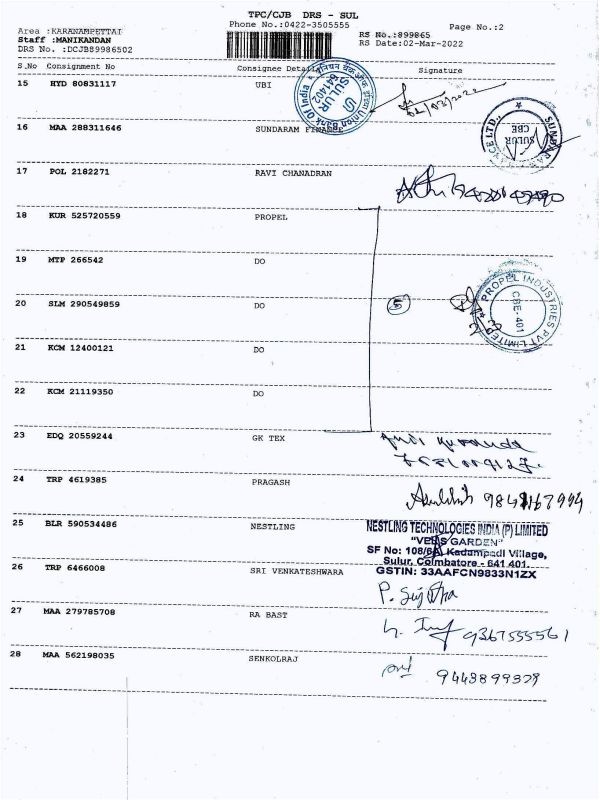 TPC/CJB DRS - SUL
Area :KARANAMPETTAI
Phone No.:0422-3505555
Page No.:2
Staff :MANIKANDAN
RS No.:899865
DRS No. :DCJB89986502
RS Date:02-Mar-2022
S.No Consignment No Consignee Details Signature
15 HYD 80831117 UBI
Union Bank Of India
SULUR
641402
16 MAA 288311646 SUNDARAM FINANCE
SULUR
CBE
17 POL 2182271 RAVI CHANADRAN
18 KUR 525720559 PROPEL
19 MTP 266542 DO
20 SLM 290549859 DO
5
PROPEL INDUSTRIES PVT LIMITED
CBE-401
21 KCM 12400121 DO
22 KCM 21119350 DO
23 EDQ 20559244 GK TEX
24 TRP 4619385 PRAGASH
25 BLR 590534486 NESTLING
NESTLING TECHNOLOGIES INDIA (P) LIMITED
GARDEN"
SF No: Kadampadi Village,
Sulur, Coimbatore - 641 401.
GSTIN: 33AAFCN9833N1ZX
26 TRP 6466008 SRI VENKATESHWARA
27 MAA 279785708 RA BAST
9367555561
28 MAA 562198035 SENKOLRAJ
9443899379